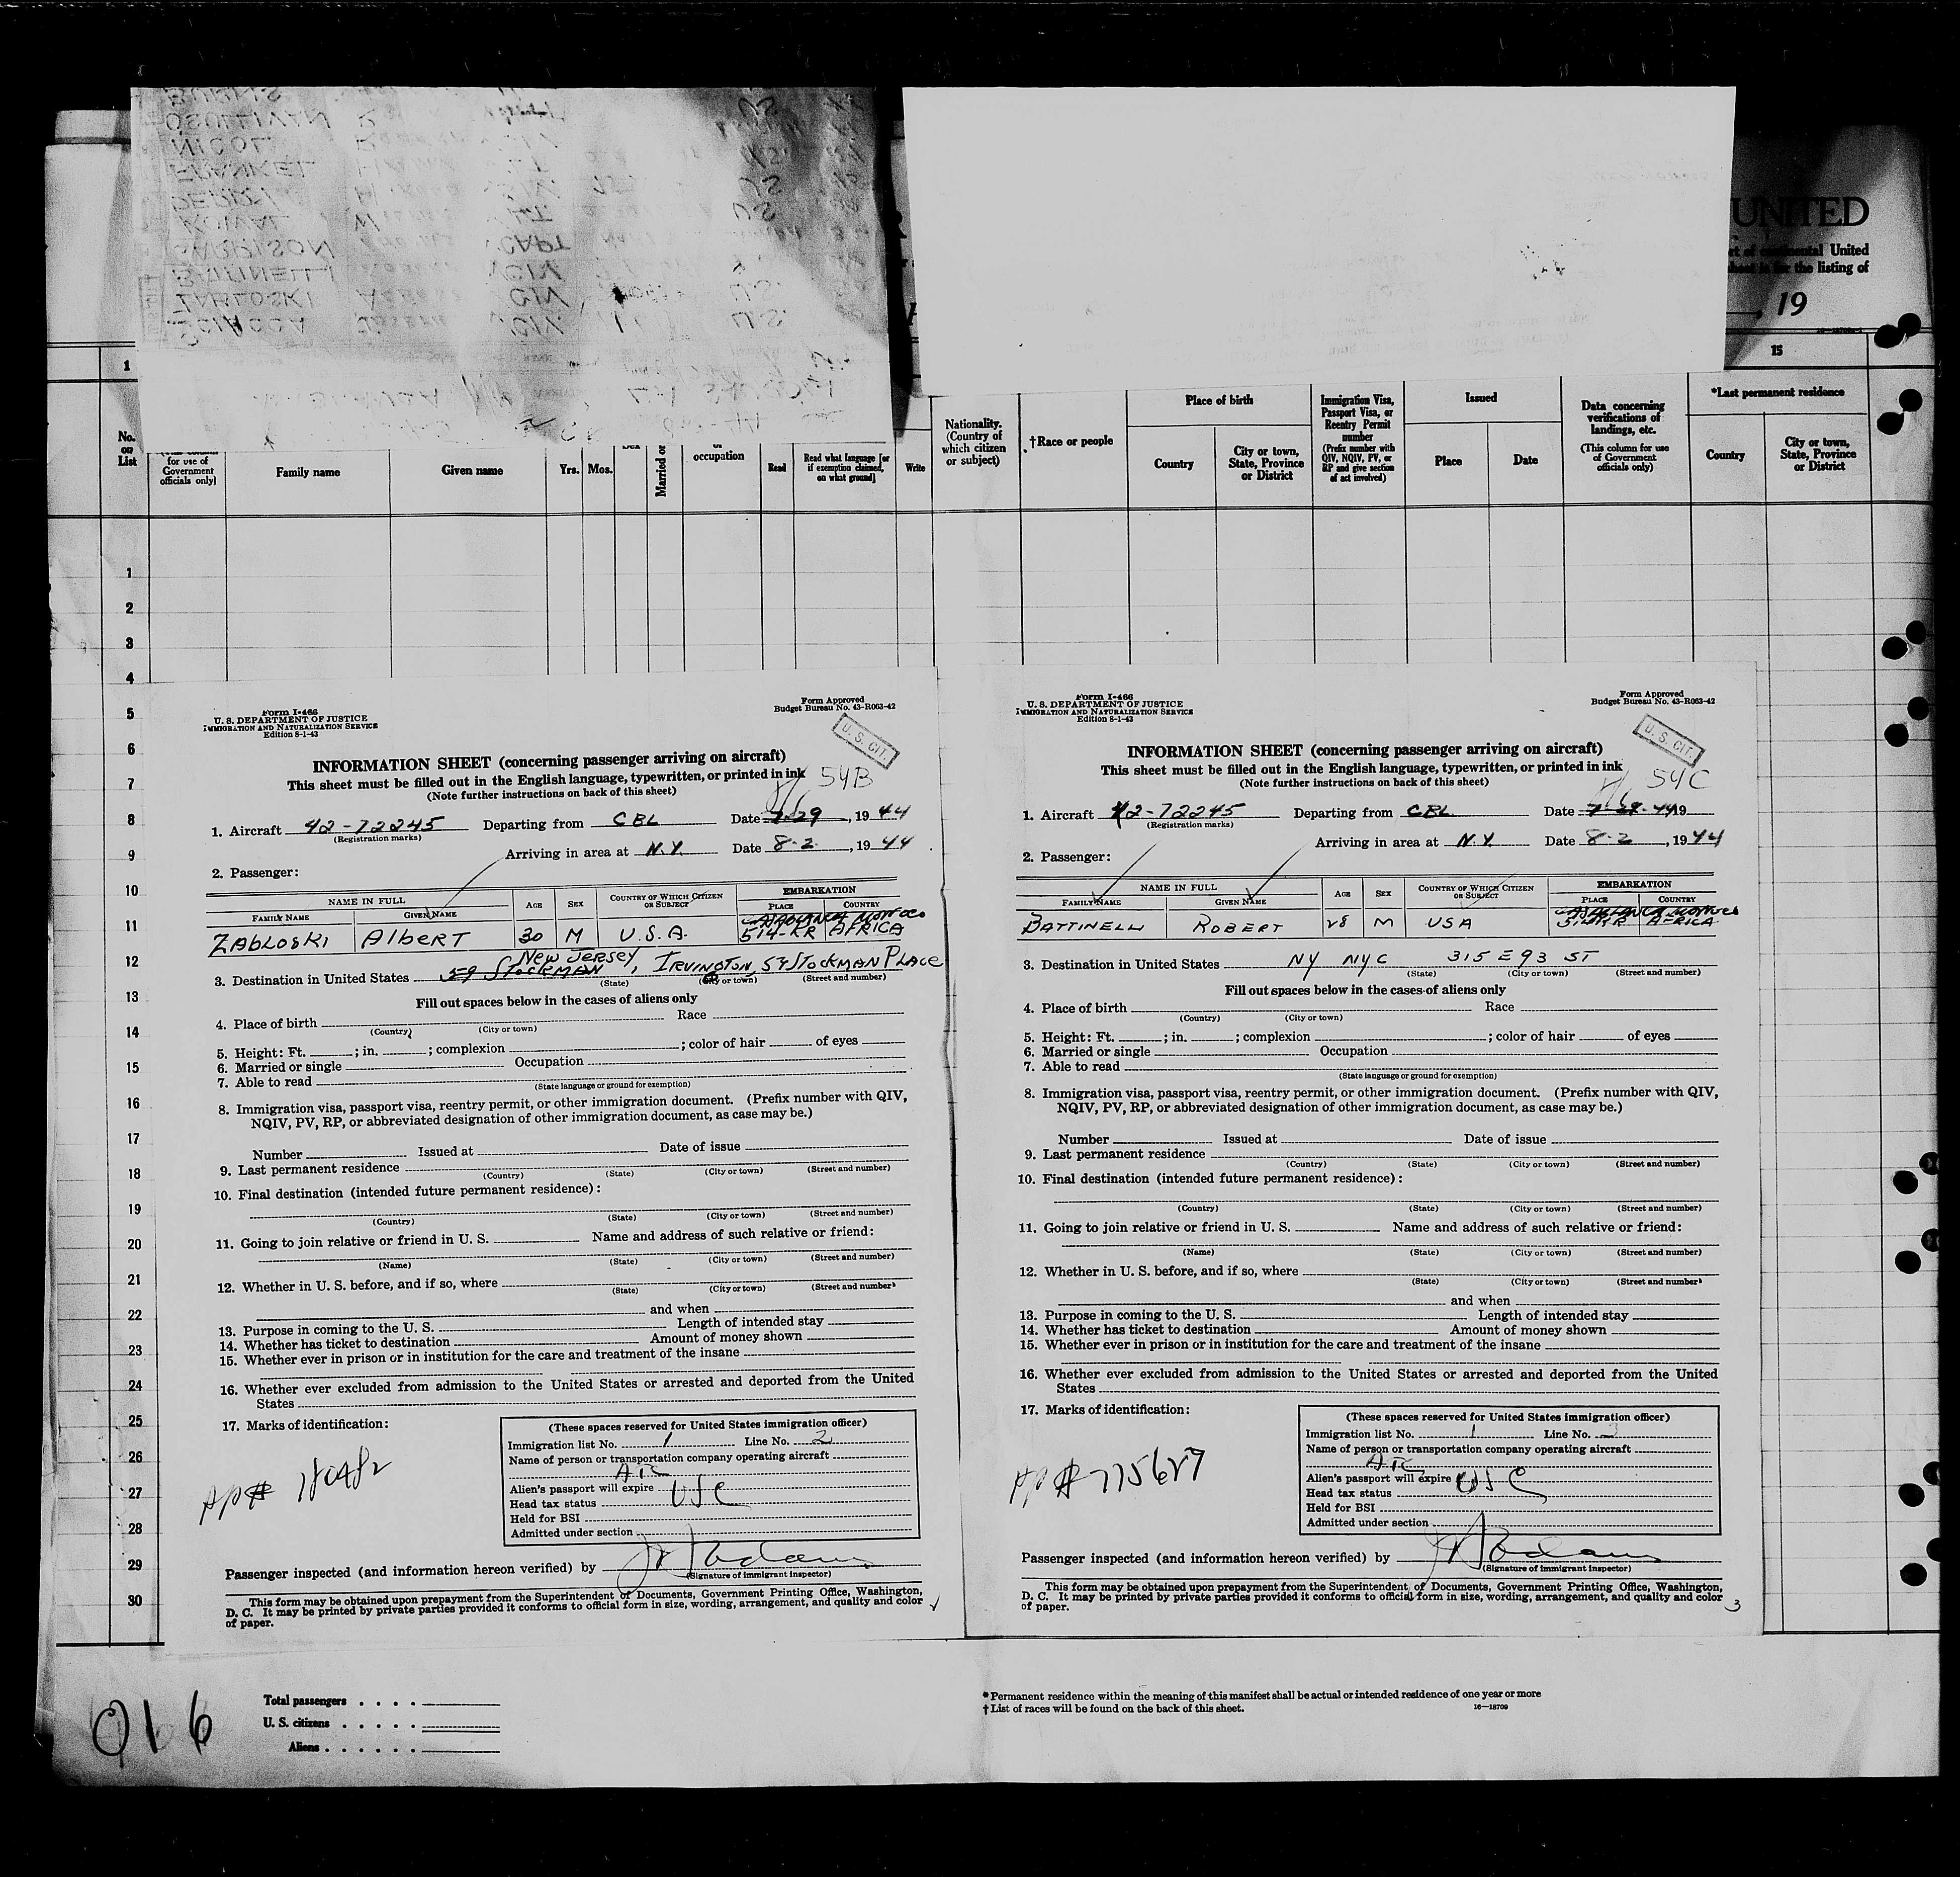 UNITED
United
the listing of
, 19
15
No. on List
for use of Government officials only]
Family name
Given name
Yrs.
Mos.
Married or
occupation
Read
Read what language [or if exemption claimed, on what ground]
Write
Nationality. (Country of which citizen or subject)
†Race or people
Place of birth
Country
City or town, State, Province or District
Immigration Visa, Passport Visa, or Reentry Permit number
(Prefix number with QIV, NQIV, PV, or RP and give section of act involved)
Issued
Place
Date
Data concerning verifications of landings, etc.
(This column for use of Government officials only)
*Last permanent residence
Country
City or town, State, Province or District
1
2
3
4
5
6
7
8
9
10
11
12
13
14
15
16
17
18
19
20
21
22
23
24
25
26
27
28
29
30
Form I-466
U. S. DEPARTMENT OF JUSTICE
IMMIGRATION AND NATURALIZATION SERVICE
Edition 8-1-43
Form Approved
Budget Bureau No. 43-R063-42
U. S. CIT.
INFORMATION SHEET (concerning passenger arriving on aircraft)
This sheet must be filled out in the English language, typewritten, or printed in ink
(Note further instructions on back of this sheet)
54B
1. Aircraft 42-72245 Departing from CBL Date 7-29, 19 44
(Registration marks)
Arriving in area at N.Y. Date 8-2, 19 44
2. Passenger:
NAME IN FULL AGE SEX COUNTRY OF WHICH CITIZEN OR SUBJECT EMBARKATION
FAMILY NAME GIVEN NAME PLACE COUNTRY
ZABLOSKI Albert 30 M U.S.A. AFRICA
New Jersey
3. Destination in United States 59 Stockman, IRVINGTON, 59 STOCKMAN PLACE
(State) (City or town) (Street and number)
Fill out spaces below in the cases of aliens only
4. Place of birth Race
(Country) (City or town)
5. Height: Ft. ; in. ; complexion ; color of hair of eyes
6. Married or single Occupation
7. Able to read
(State language or ground for exemption)
8. Immigration visa, passport visa, reentry permit, or other immigration document. (Prefix number with QIV,
NQIV, PV, RP, or abbreviated designation of other immigration document, as case may be.)
Number Issued at Date of issue
9. Last permanent residence
(Country) (State) (City or town) (Street and number)
10. Final destination (intended future permanent residence):
(Country) (State) (City or town) (Street and number)
11. Going to join relative or friend in U. S. Name and address of such relative or friend:
(Name) (State) (City or town) (Street and number)
12. Whether in U. S. before, and if so, where
(State) (City or town) (Street and number)
and when
13. Purpose in coming to the U. S. Length of intended stay
14. Whether has ticket to destination Amount of money shown
15. Whether ever in prison or in institution for the care and treatment of the insane
16. Whether ever excluded from admission to the United States or arrested and deported from the United
States
17. Marks of identification:
(These spaces reserved for United States immigration officer)
Immigration list No. 1 Line No. 2
Name of person or transportation company operating aircraft
ATC
Alien's passport will expire
Head tax status USC
Held for BSI
Admitted under section
Passenger inspected (and information hereon verified) by
(Signature of immigrant inspector)
This form may be obtained upon prepayment from the Superintendent of Documents, Government Printing Office, Washington,
D. C. It may be printed by private parties provided it conforms to official form in size, wording, arrangement, and quality and color
of paper.
Form I-466
U. S. DEPARTMENT OF JUSTICE
IMMIGRATION AND NATURALIZATION SERVICE
Edition 8-1-43
Form Approved
Budget Bureau No. 43-R063-42
U. S. CIT.
INFORMATION SHEET (concerning passenger arriving on aircraft)
This sheet must be filled out in the English language, typewritten, or printed in ink
(Note further instructions on back of this sheet)
54C
1. Aircraft 42-72245 Departing from CBL Date 7-29-44 19
(Registration marks)
Arriving in area at N.Y. Date 8-2, 19 44
2. Passenger:
NAME IN FULL AGE SEX COUNTRY OF WHICH CITIZEN OR SUBJECT EMBARKATION
FAMILY NAME GIVEN NAME PLACE COUNTRY
BATTINELLI ROBERT 28 M USA AFRICA
3. Destination in United States NY NYC 315 E 93 ST
(State) (City or town) (Street and number)
Fill out spaces below in the cases of aliens only
4. Place of birth Race
(Country) (City or town)
5. Height: Ft. ; in. ; complexion ; color of hair of eyes
6. Married or single Occupation
7. Able to read
(State language or ground for exemption)
8. Immigration visa, passport visa, reentry permit, or other immigration document. (Prefix number with QIV,
NQIV, PV, RP, or abbreviated designation of other immigration document, as case may be.)
Number Issued at Date of issue
9. Last permanent residence
(Country) (State) (City or town) (Street and number)
10. Final destination (intended future permanent residence):
(Country) (State) (City or town) (Street and number)
11. Going to join relative or friend in U. S. Name and address of such relative or friend:
(Name) (State) (City or town) (Street and number)
12. Whether in U. S. before, and if so, where
(State) (City or town) (Street and number)
and when
13. Purpose in coming to the U. S. Length of intended stay
14. Whether has ticket to destination Amount of money shown
15. Whether ever in prison or in institution for the care and treatment of the insane
16. Whether ever excluded from admission to the United States or arrested and deported from the United
States
17. Marks of identification:
(These spaces reserved for United States immigration officer)
Immigration list No. 1 Line No. 3
Name of person or transportation company operating aircraft
ATC
Alien's passport will expire USC
Head tax status
Held for BSI
Admitted under section
Passenger inspected (and information hereon verified) by
(Signature of immigrant inspector)
This form may be obtained upon prepayment from the Superintendent of Documents, Government Printing Office, Washington,
D. C. It may be printed by private parties provided it conforms to official form in size, wording, arrangement, and quality and color
of paper. 3
016
Total passengers
U. S. citizens
Aliens
*Permanent residence within the meaning of this manifest shall be actual or intended residence of one year or more
†List of races will be found on the back of this sheet. 16—18709